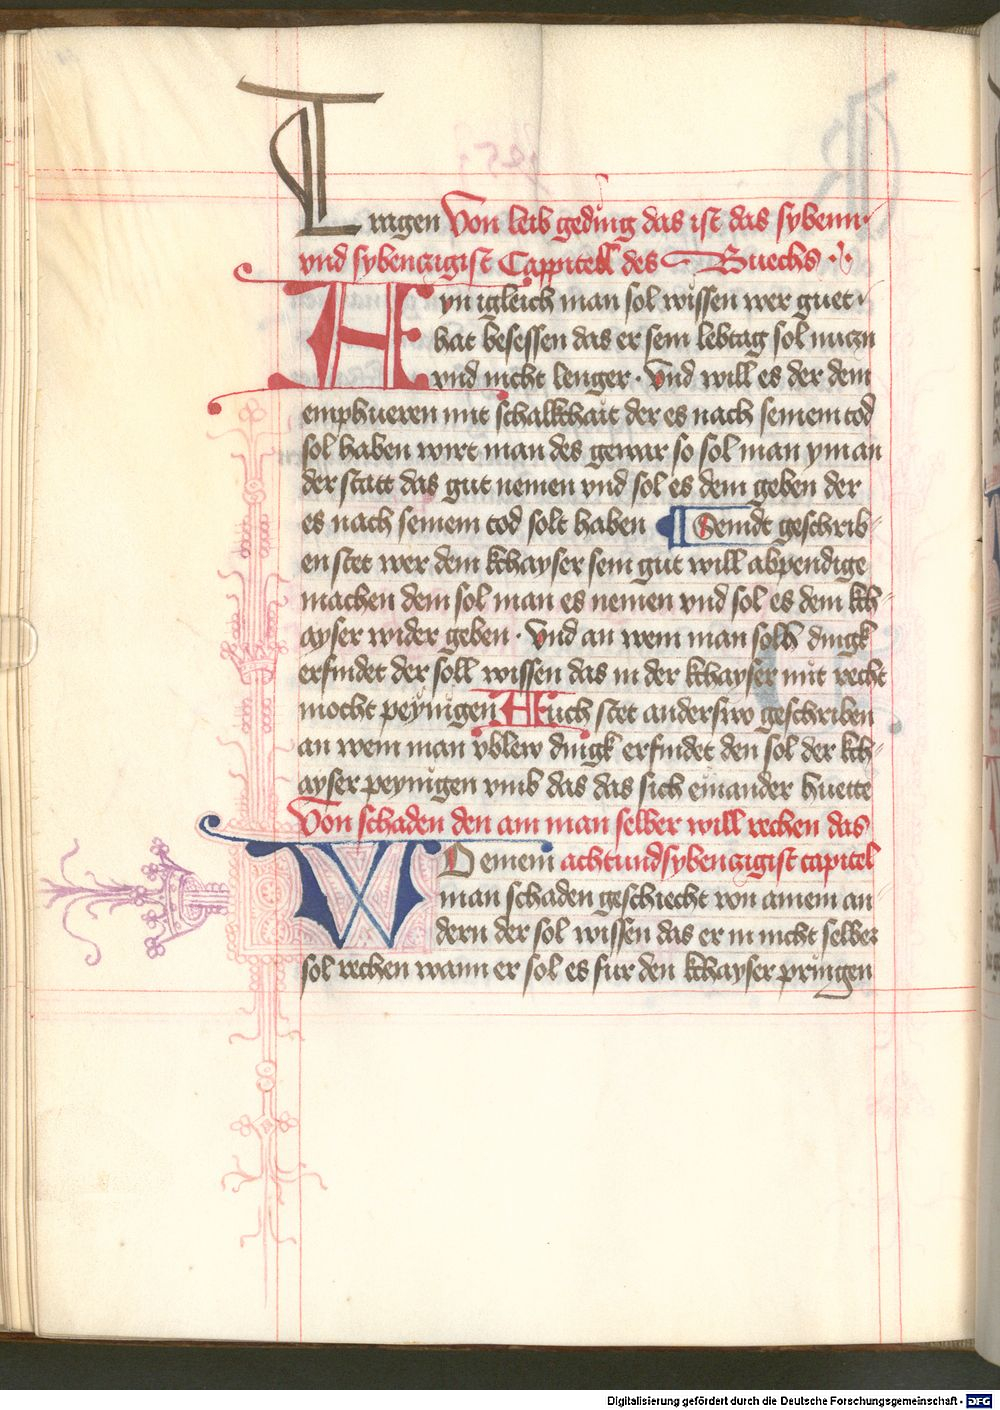 Tragen Von leib geding das ist das sybenn·
vnd sybentzigist Cappitell des Buechs ·
Ayn igleich man sol wissen wer guet ·
hat besessen das er sein lebtag sol nutzn
vnd nicht lenger · Vnd will es der dem
emphueren mit schalkhait der es nach seinem tod
sol haben wirt man des gewar so sol man ym an
der statt das gut nemen vnd sol es dem geben der
es nach seinem tod solt haben Demdt geschrib-
en stet wer dem khayser sein gut will abpendige
machen dem sol man es nemen vnd sol es dem kh-
ayser wider geben · Vnd an wem man solh dingk
erfindet der soll wissen das in der khayser mit recht
mocht peynigen Auch stet anderswo geschriben
an wem man vblew dingk erfindet den sol der kh-
ayser peynigen vmb das das sich einander huette
Von schaden den am man selber will rechen das
WO einem achtundsybentzigist capitel
man schaden geschiecht von ainem an
dern der sol wissen das er in nicht selber
sol rechen wann er sol es fur den khayser pringen
Digitalisierung gefördert durch die Deutsche Forschungsgemeinschaft - DFG